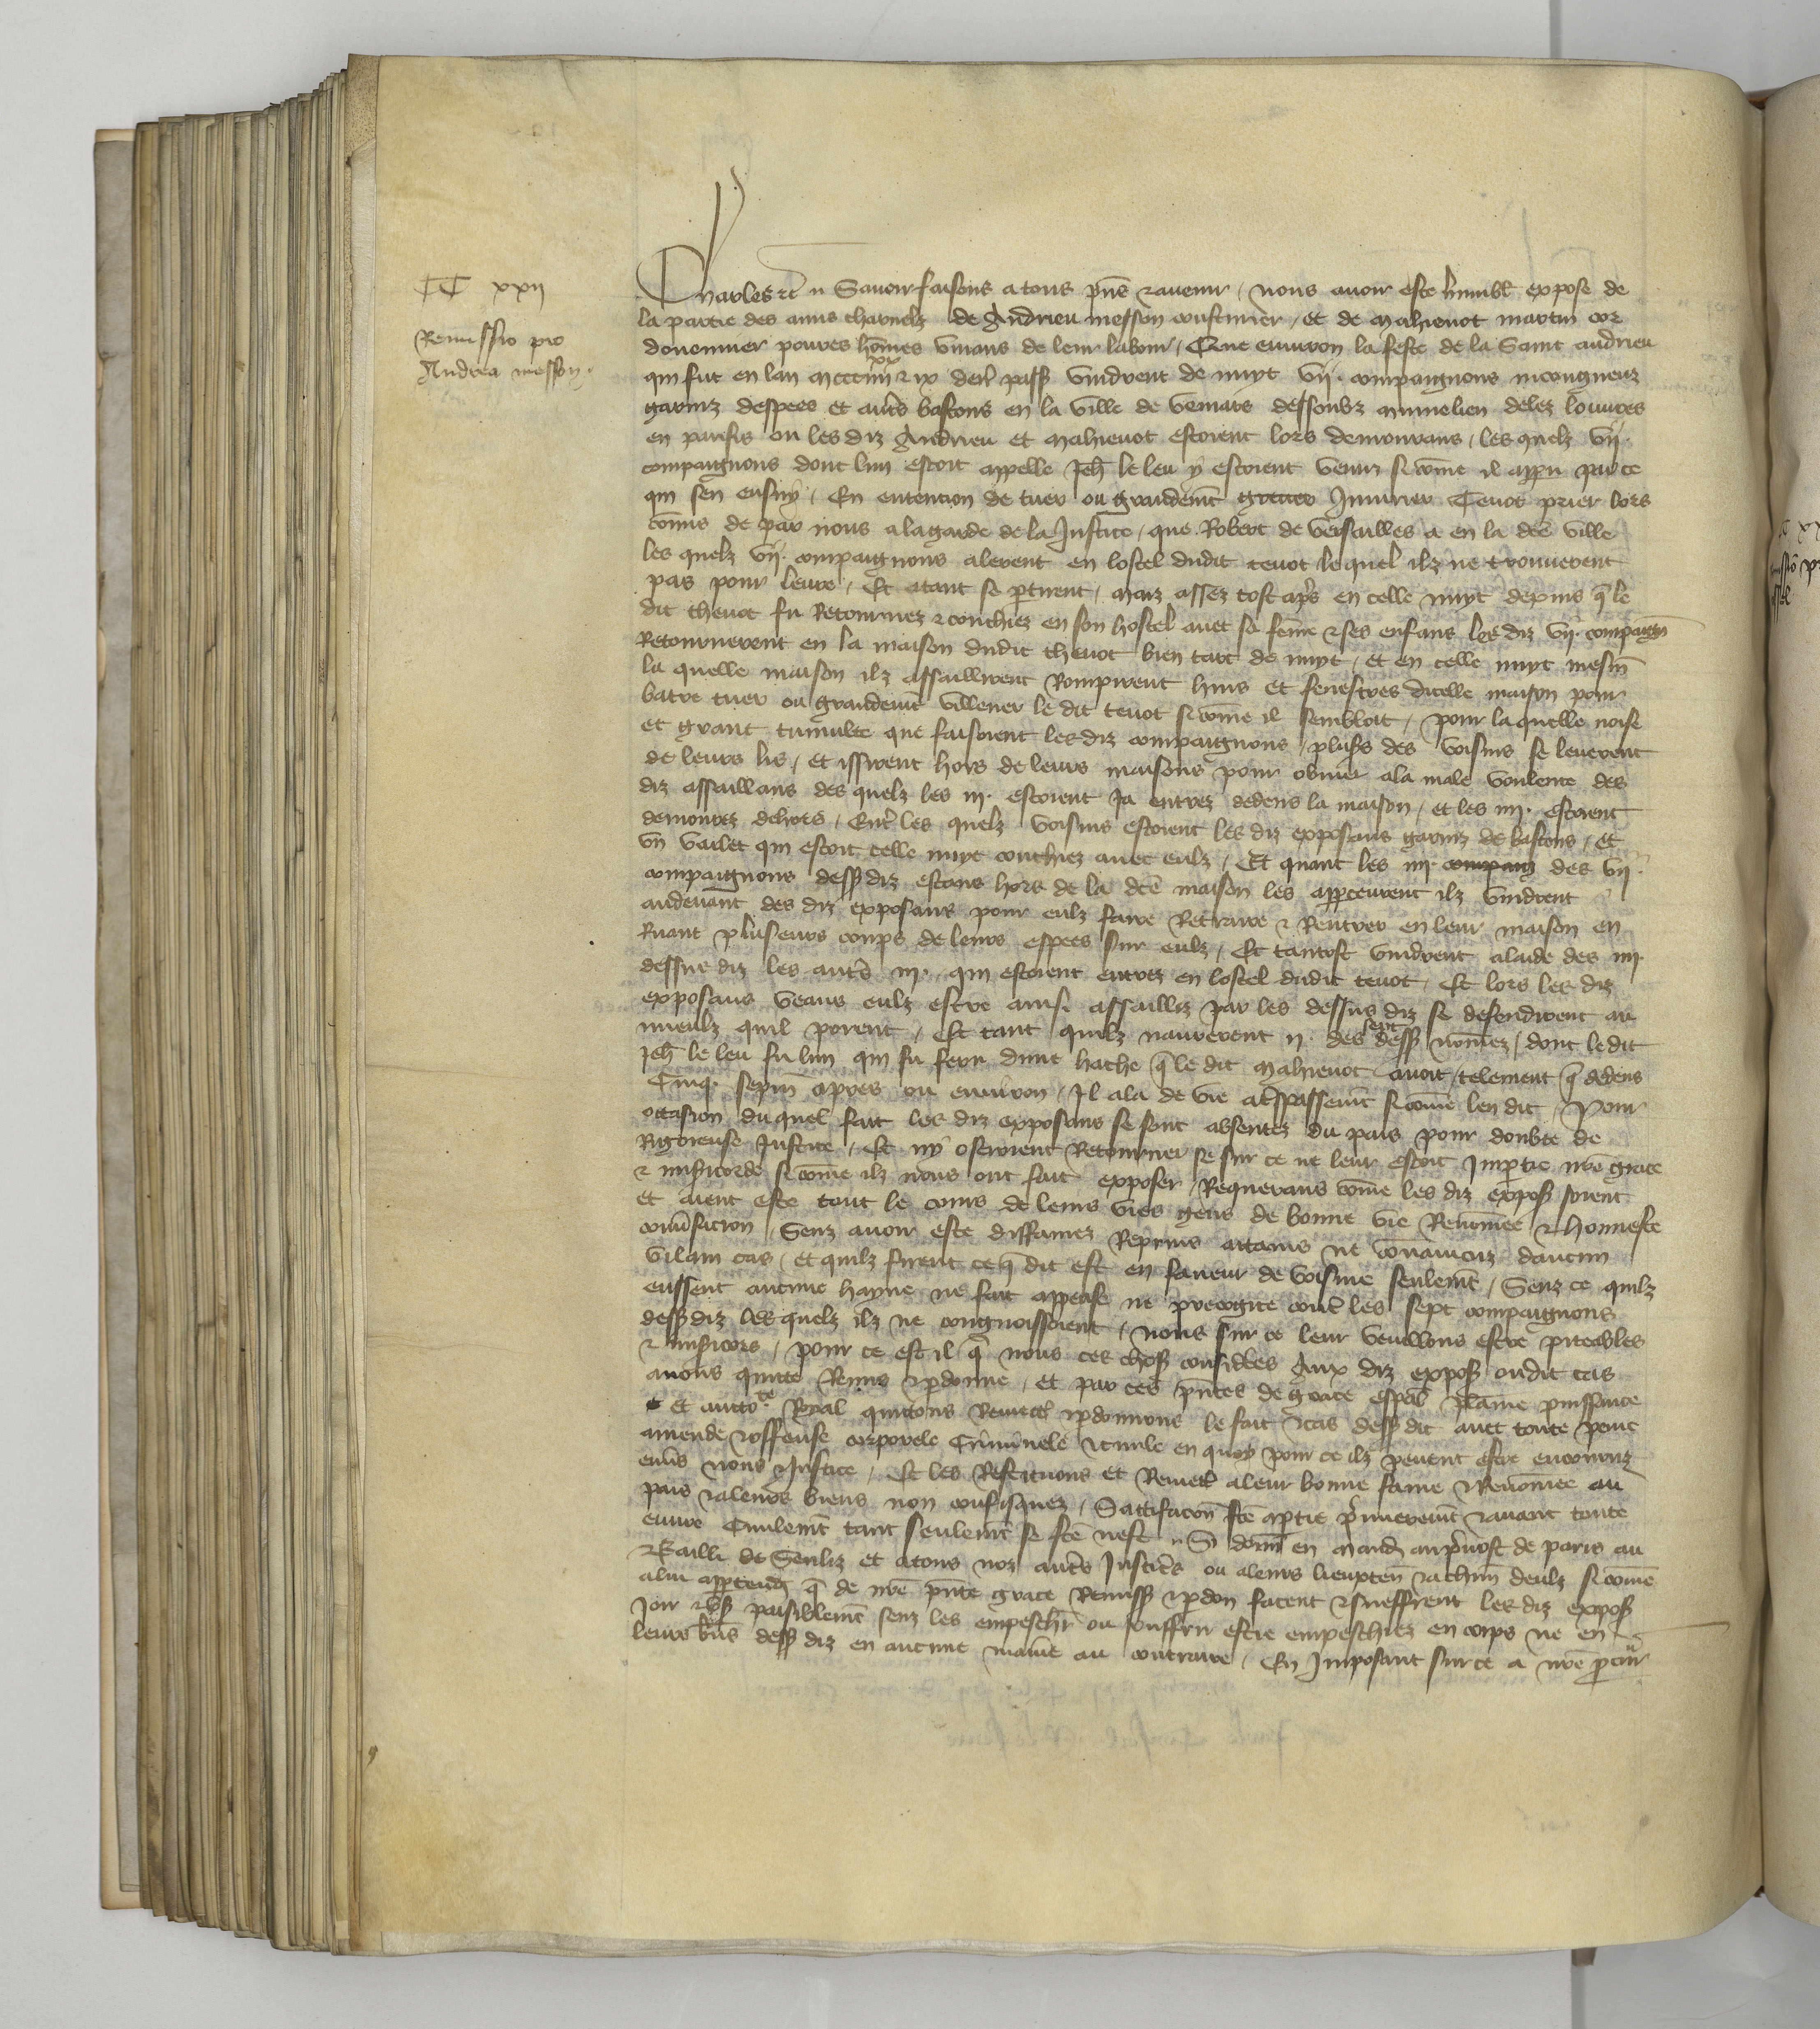 CC xxii
Remissio pro
Andrea messon.
Charles etc. Savoir faisons a tous pñs & avenir, nous avoir este humblt expose de
la partie des amis charnelz de Andrieu messon cousturier, et de Mahieuot martin cor
douennier povres hom̃es vivans de leur labour, Que environ la feste de la Saint andrieu
qui fut en lan Mccciiii xx & ix derr passe vindrent de nuyt vij. compaignons incongneuz
garniz despees et autrs bastons en la ville de vemars dessoubz monmelien delez louvres
en parisis ou les diz Andrieu et Mahieuot estoient lors demourans, les quelz vij.
compaignons dont lun estoit appelle Jeh̃ le leu y estoient venuz si com̃e il apparu par ce
qui sen ensuy, En entention de tuer ou grandemt grever Injurier Tevot prier lors
com̃is de par nous a la garde de la Justice, que Robert de versailles a en la dcẽ ville
les quelz vij. compaignons alerent en lostel dudit tevot le quel ilz ne trouverent
pas pour leure, Et atant se ptirent, maiz assez tost aprs en celle nuyt depuis q̃ le
dit thevot fu Retournez & couchiez en son hostel avec sa fem̃e & ses enfans les diz vij. compaign̄
Retournerent en la maison dudit thevot bien tart de nuyt, et en celle nuyt mesm̃
la quelle maison ilz assaillirent Rompirent huis et fenestres dicelle maison pour
batre tuer ou grandemt villener le dit tevot si com̃e il sembloit, pour la quelle noise
et grant tumulte que faisoient les diz compaignons, plusrs des voisins se leverent
de leurs lis, et issirent hors de leurs maisons pour obvier ala male voulente des
diz assaillans des quelz les iij. estoient Ja entrez dedens la maison, et les iiij. estoient
demourez dehors, Entr les quelz voisins estoient les diz exposans garniz de bastons, et
un varlet qui estoit celle nuyt couchiez avec eulz, Et quant les iiij. compaig des vij.
compaignons dess diz estans hors de la dcẽ maison les apperceurent ilz vindrent
audevant des diz exposans pour eulz faire Retraire & Rentrer en leur maison en
Ruant pluseurs coups de leurs espees sur eulz, Et tantost vindrent alaide des iiij.
dessus diz les autrs iij. qui estoient entrez en lostel dudit tevot, Et lors les diz
exposans veans eulz estre ainsi assailliz par les dessus diz se defendirent au
mieulz quil porent, Et tant quilz navrerent ij. des sept dess nom̃ez, dont ledit
Jeh̃ le leu fu lun qui fu feru dune hache q̃ le dit Mahieuot avoit, telement q̃ dedens
Cinq sepm̃ apres ou environ, Il ala de vie a trspassemt si com̃e len dit, Pour
occasion du quel fait les diz exposans se sont absentez du pais pour doubte de
Rigoreuse Justice, Et ny oseroient Retourner se sur ce ne leur estoit Imptie nrẽ grace
& misicorde si com̃e ilz nous ont fait exposer, Requerans com̃e les diz expos soient
et aient este tout le cours de leurs vies gens de bonne vie Renom̃ee & honneste
convsacion, Senz avoir este diffamez Reprins attains ne convaincuz daucun
vilain cas, et quilz firent ce q̃ dit est en faveur de voisine seulemt, Senz ce quilz
eussent aucune hayne ne fait appense ne precogite contr les sept compaignons
dess diz les quelz ilz ne congnoissoient, nous sur ce leur veuillons estre piteables
& misicors, pour ce est il q̃ nous ces choses considrẽs Aux diz expos ou dit cas
avons quitte Remis & pdonne, et par ces pñtes de grace espãl plaine puissance
et auctote Royal quittons Remettõs & pdonnons le fait & cas dess dit avec toute peine
amende & offense corporele Criminele & civile en quoy pour ce ilz pevent estre encouruz
envrs nous & Justice, Et les Restituons et Remett aleur bonne fame & Renom̃ee au
pais & aleurs biens non confisquez, Satisfacion fcẽ aptie premierement & avant toute
euvre Civilemt tant seulemt se fcẽ nest Si dom̃ en Mand au prevost de paris au
& Bailli de Senliz et atous noz autrs Justicrs ou aleurs lieuxten̄ & achun̄ deulz si com̃e
alui appartend q̃ de nrẽ pñte grace Remiss & pdon facent & sueffrent les diz expos
Joir & user paisiblemt senz les empeschr ou souffrir estre empeschiez en corps ne en
leurs biens dess diz en aucune manie au contraire, En Imposant sur ce a nrẽ procur